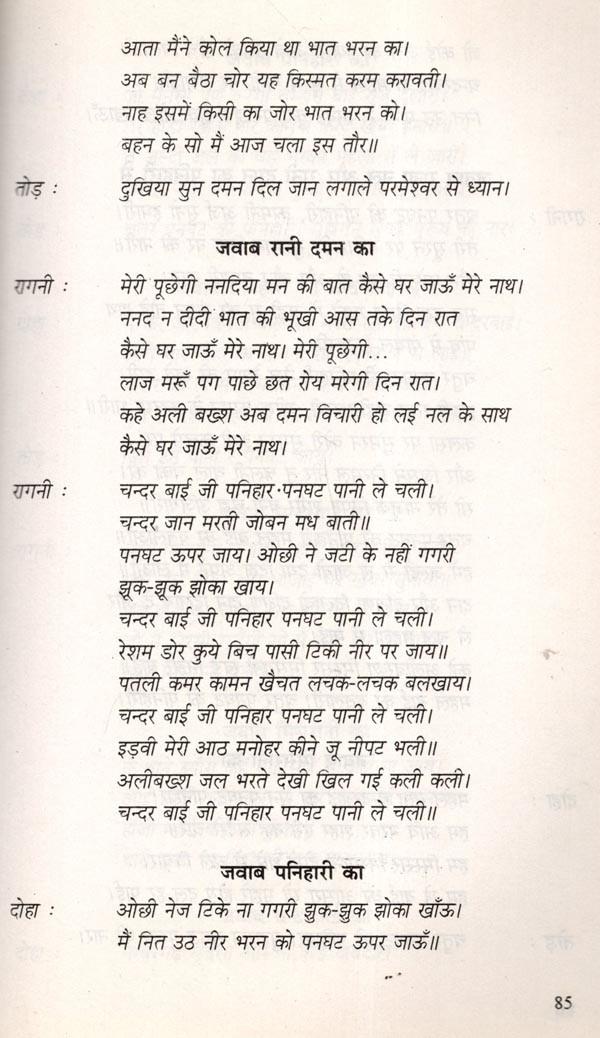 आता मैंने कोल किया था भात भरन का।
अब बन बैठा चोर यह किस्मत करम करावती।
नाह इसमें किसी का जोर भात भरन को।
बहन के सो मैं आज चला इस तौर॥
तोड़ : दुखिया सुन दमन दिल जान लगाले परमेश्वर से ध्यान।
जवाब रानी दमन का
रागनी : मेरी पूछेगी ननदिया मन की बात कैसे घर जाऊँ मेरे नाथ।
ननद न दीदी भात की भूखी आस तके दिन रात
कैसे घर जाऊँ मेरे नाथ। मेरी पूछेगी...
लाज मरूँ पग पाछे छत रोय मरेगी दिन रात।
कहे अली बख्श अब दमन विचारी हो लई नल के साथ
कैसे घर जाऊँ मेरे नाथ।
रागनी : चन्दर बाई जी पनिहार पनघट पानी ले चली।
चन्दर जान मरती जोबन मध बाती॥
पनघट ऊपर जाय। ओछी ने जटी के नहीं गगरी
झूक-झूक झोका खाय।
चन्दर बाई जी पनिहार पनघट पानी ले चली।
रेशम डोर कुये बिच पासी टिकी नीर पर जाय॥
पतली कमर कामन खैचत लचक-लचक बलखाय।
चन्दर बाई जी पनिहार पनघट पानी ले चली।
इडवी मेरी आठ मनोहर कीने जू नीपट भली॥
अलीबख्श जल भरते देखी खिल गई कली कली।
चन्दर बाई जी पनिहार पनघट पानी ले चली॥
जवाब पनिहारी का
दोहा : ओछी नेज टिके ना गगरी झुक-झुक झोका खाँऊ।
मैं नित उठ नीर भरन को पनघट ऊपर जाऊँ॥
85